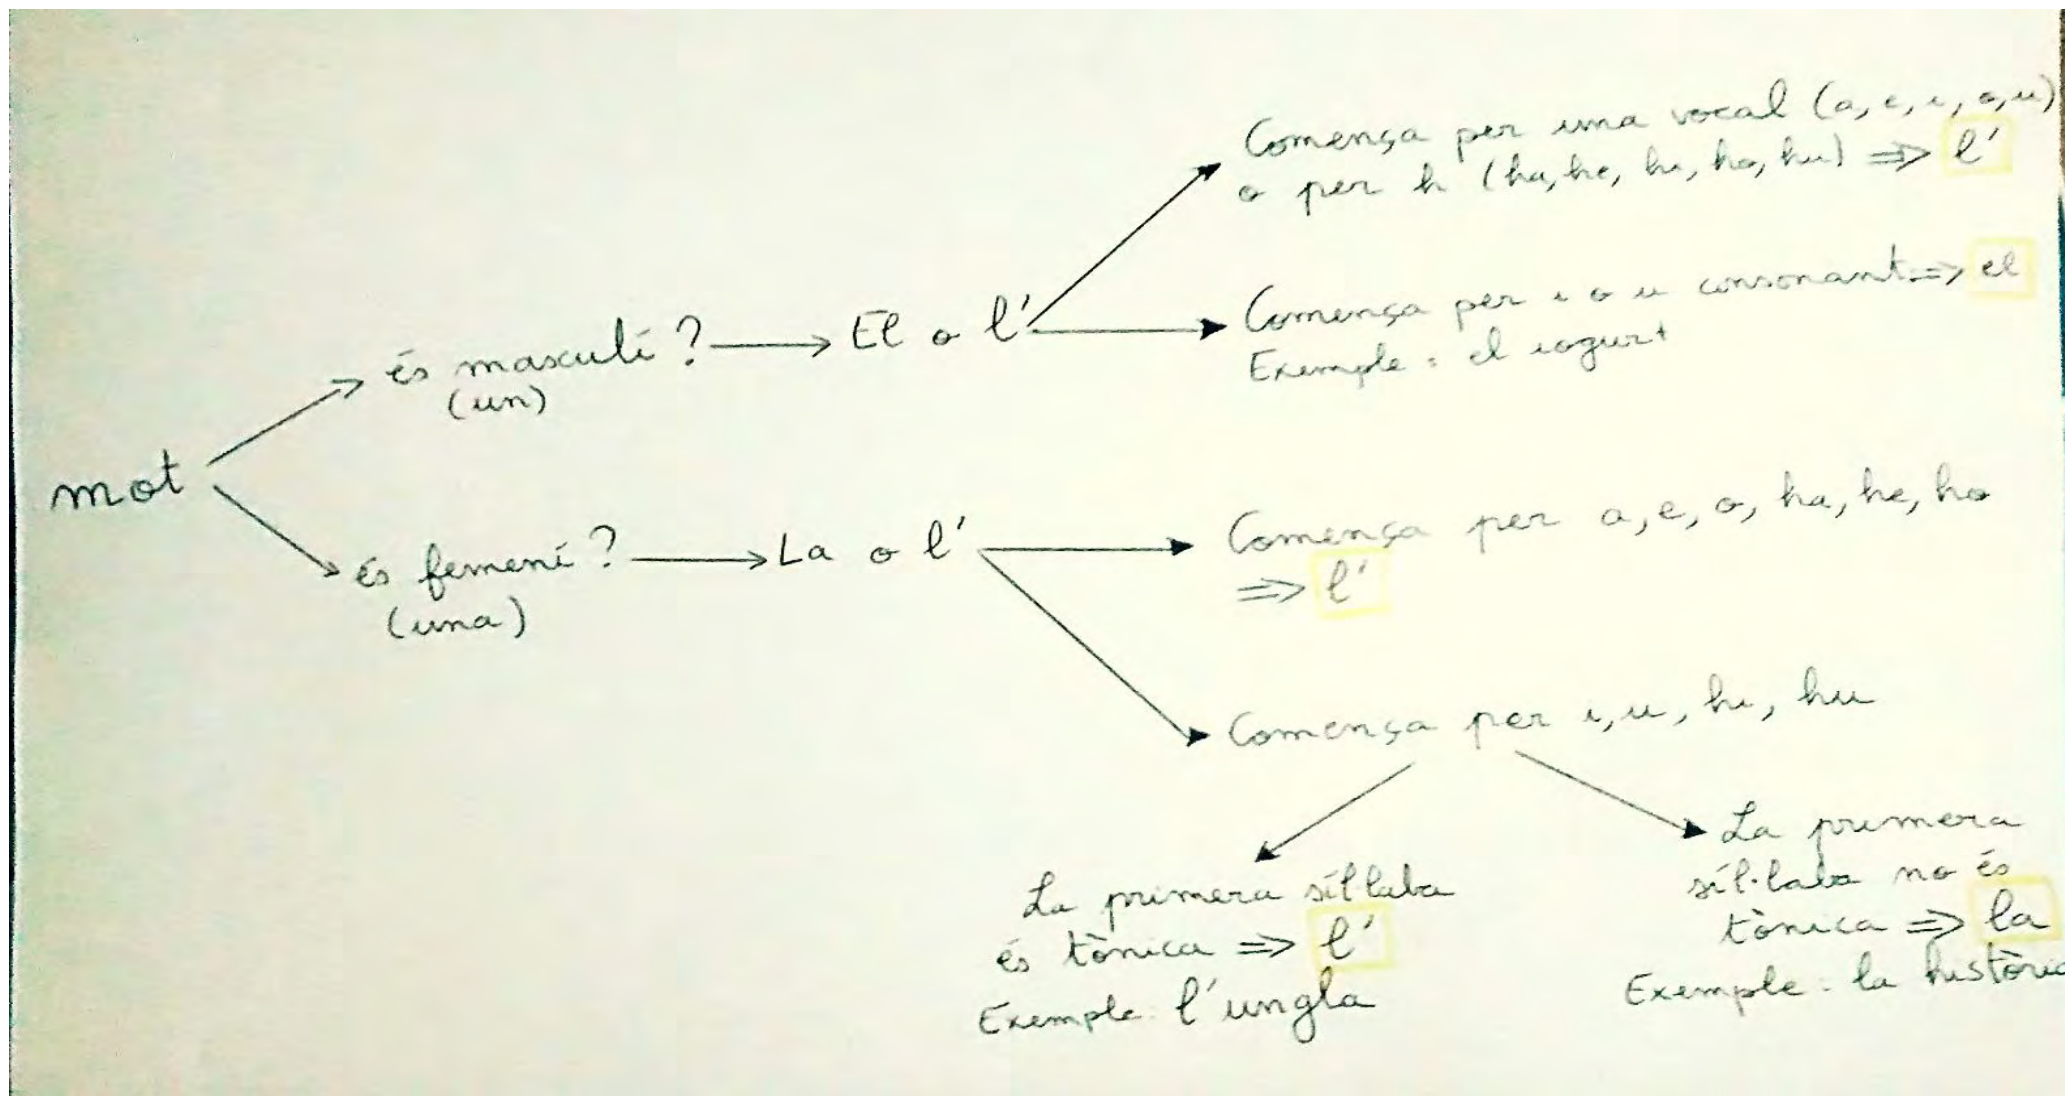 mot
és masculí?
(un)
El o l'
Comença per una vocal (a, e, i, o, u)
o per h (ha, he, hi, ho, hu) => l'
Comença per i o u consonant => el
Exemple : el iogurt
és femení?
(una)
La o l'
Comença per a, e, o, ha, he, ho
=> l'
Comença per i, u, hi, hu
La primera síl·laba
és tònica => l'
Exemple : l'ungla
La primera
síl·laba no és
tònica => la
Exemple : la història